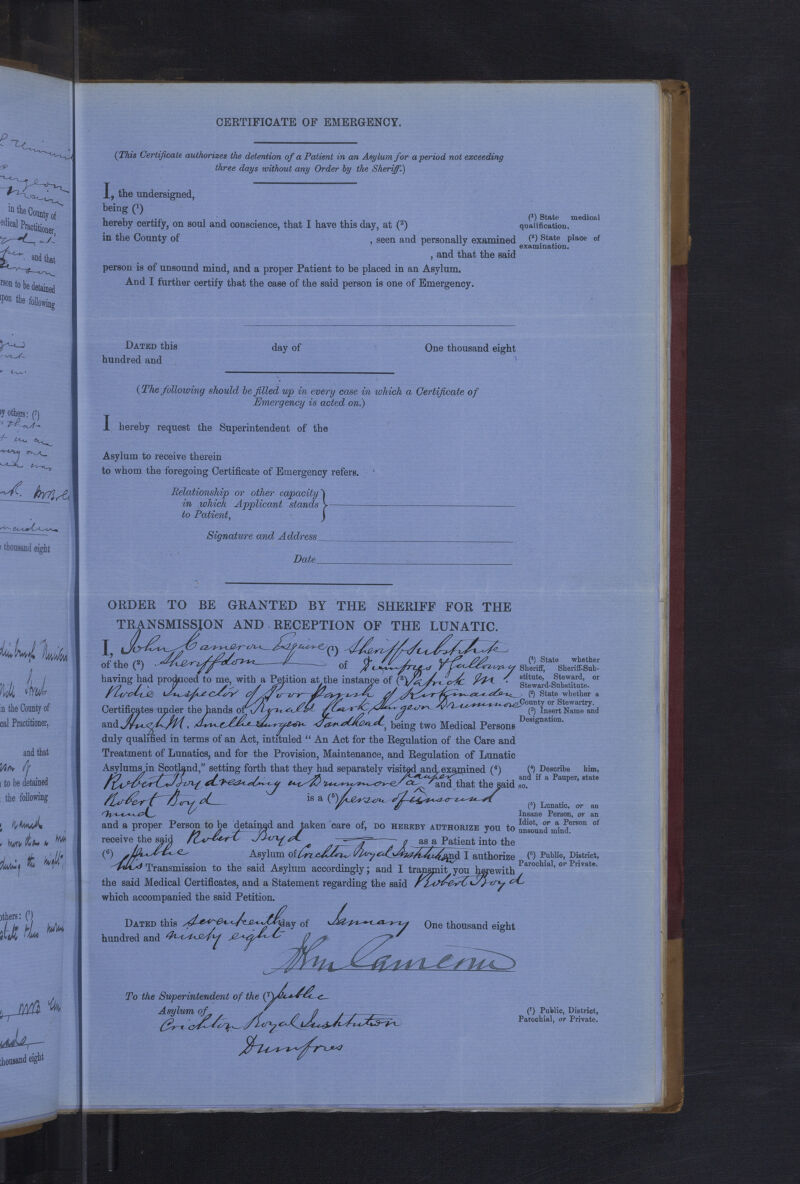 CERTIFICATE OF EMERGENCY.
(This Certificate authorizes the detention of a Patient in an Asylum for a period not exceeding
three days without any Order by the Sheriff.)
I, the undersigned,
being (¹)
hereby certify, on soul and conscience, that I have this day, at (²)
in the County of , seen and personally examined
, and that the said
person is of unsound mind, and a proper Patient to be placed in an Asylum.
And I further certify that the case of the said person is one of Emergency.
(¹) State medical
qualification.
(²) State place of
examination.
DATED this day of One thousand eight
hundred and
(The following should be filled up in every case in which a Certificate of
Emergency is acted on.)
I hereby request the Superintendent of the
Asylum to receive therein
to whom the foregoing Certificate of Emergency refers.
Relationship or other capacity
in which Applicant stands
to Patient,
Signature and Address
Date
ORDER TO BE GRANTED BY THE SHERIFF FOR THE
TRANSMISSION AND RECEPTION OF THE LUNATIC.
I, John Cameron Esquire (¹) Sheriff Substitute
of the (²) Sheriffdom of Dumfries & Galloway
having had produced to me, with a Petition at the instance of (³) Patrick M.
Rodie Inspector of Poor Parish of Kirkmaiden
Certificates under the hands of Clark Surgeon Drummore
and Hugh M. Smellie Surgeon Sandhead, being two Medical Persons
duly qualified in terms of an Act, intituled "An Act for the Regulation of the Care and
Treatment of Lunatics, and for the Provision, Maintenance, and Regulation of Lunatic
Asylums in Scotland," setting forth that they had separately visited and examined (⁴)
Robert Boyd residing in Drummore a pauper and that the said
Robert Boyd is a (⁵) person of unsound
mind
and a proper Person to be detained and taken care of, DO HEREBY AUTHORIZE you to
receive the said Robert Boyd as a Patient into the
(⁶) Public Asylum of Crichton Royal Institution and I authorize
his Transmission to the said Asylum accordingly; and I transmit you herewith
the said Medical Certificates, and a Statement regarding the said Robert Boyd
which accompanied the said Petition.
(¹) State whether
Sheriff, Sheriff-Sub-
stitute, Steward, or
Steward-Substitute.
(²) State whether a
County or Stewartry.
(³) Insert Name and
Designation.
(⁴) Describe him,
and if a Pauper, state
so.
(⁵) Lunatic, or an
Insane Person, or an
Idiot, or a Person of
unsound mind.
(⁶) Public, District,
Parochial, or Private.
DATED this seventeenth day of January One thousand eight
hundred and ninety eight
John Cameron
To the Superintendent of the (⁷) public
Asylum of
Crichton Royal Institution
Dumfries
(⁷) Public, District,
Parochial, or Private.